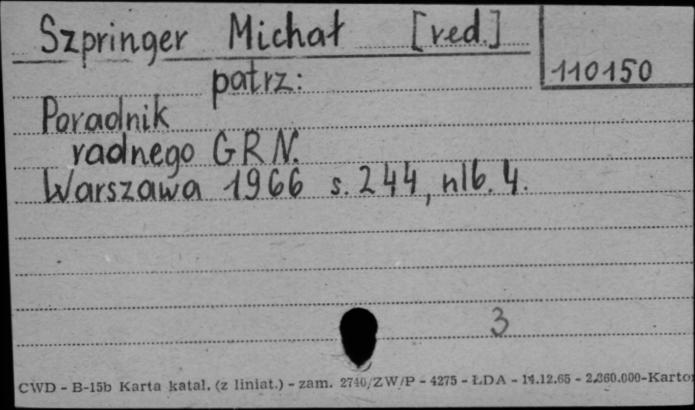 Szpringer Michał [red.]
110150
patrz:
Poradnik
radnego GRN.
Warszawa 1966 s. 244, nlb. 4.
3
CWD - B-15b Karta katal. (z liniat.) - zam. 2740/ZW/P - 4275 - ŁDA - 14.12.65 - 2.360.000-Karto